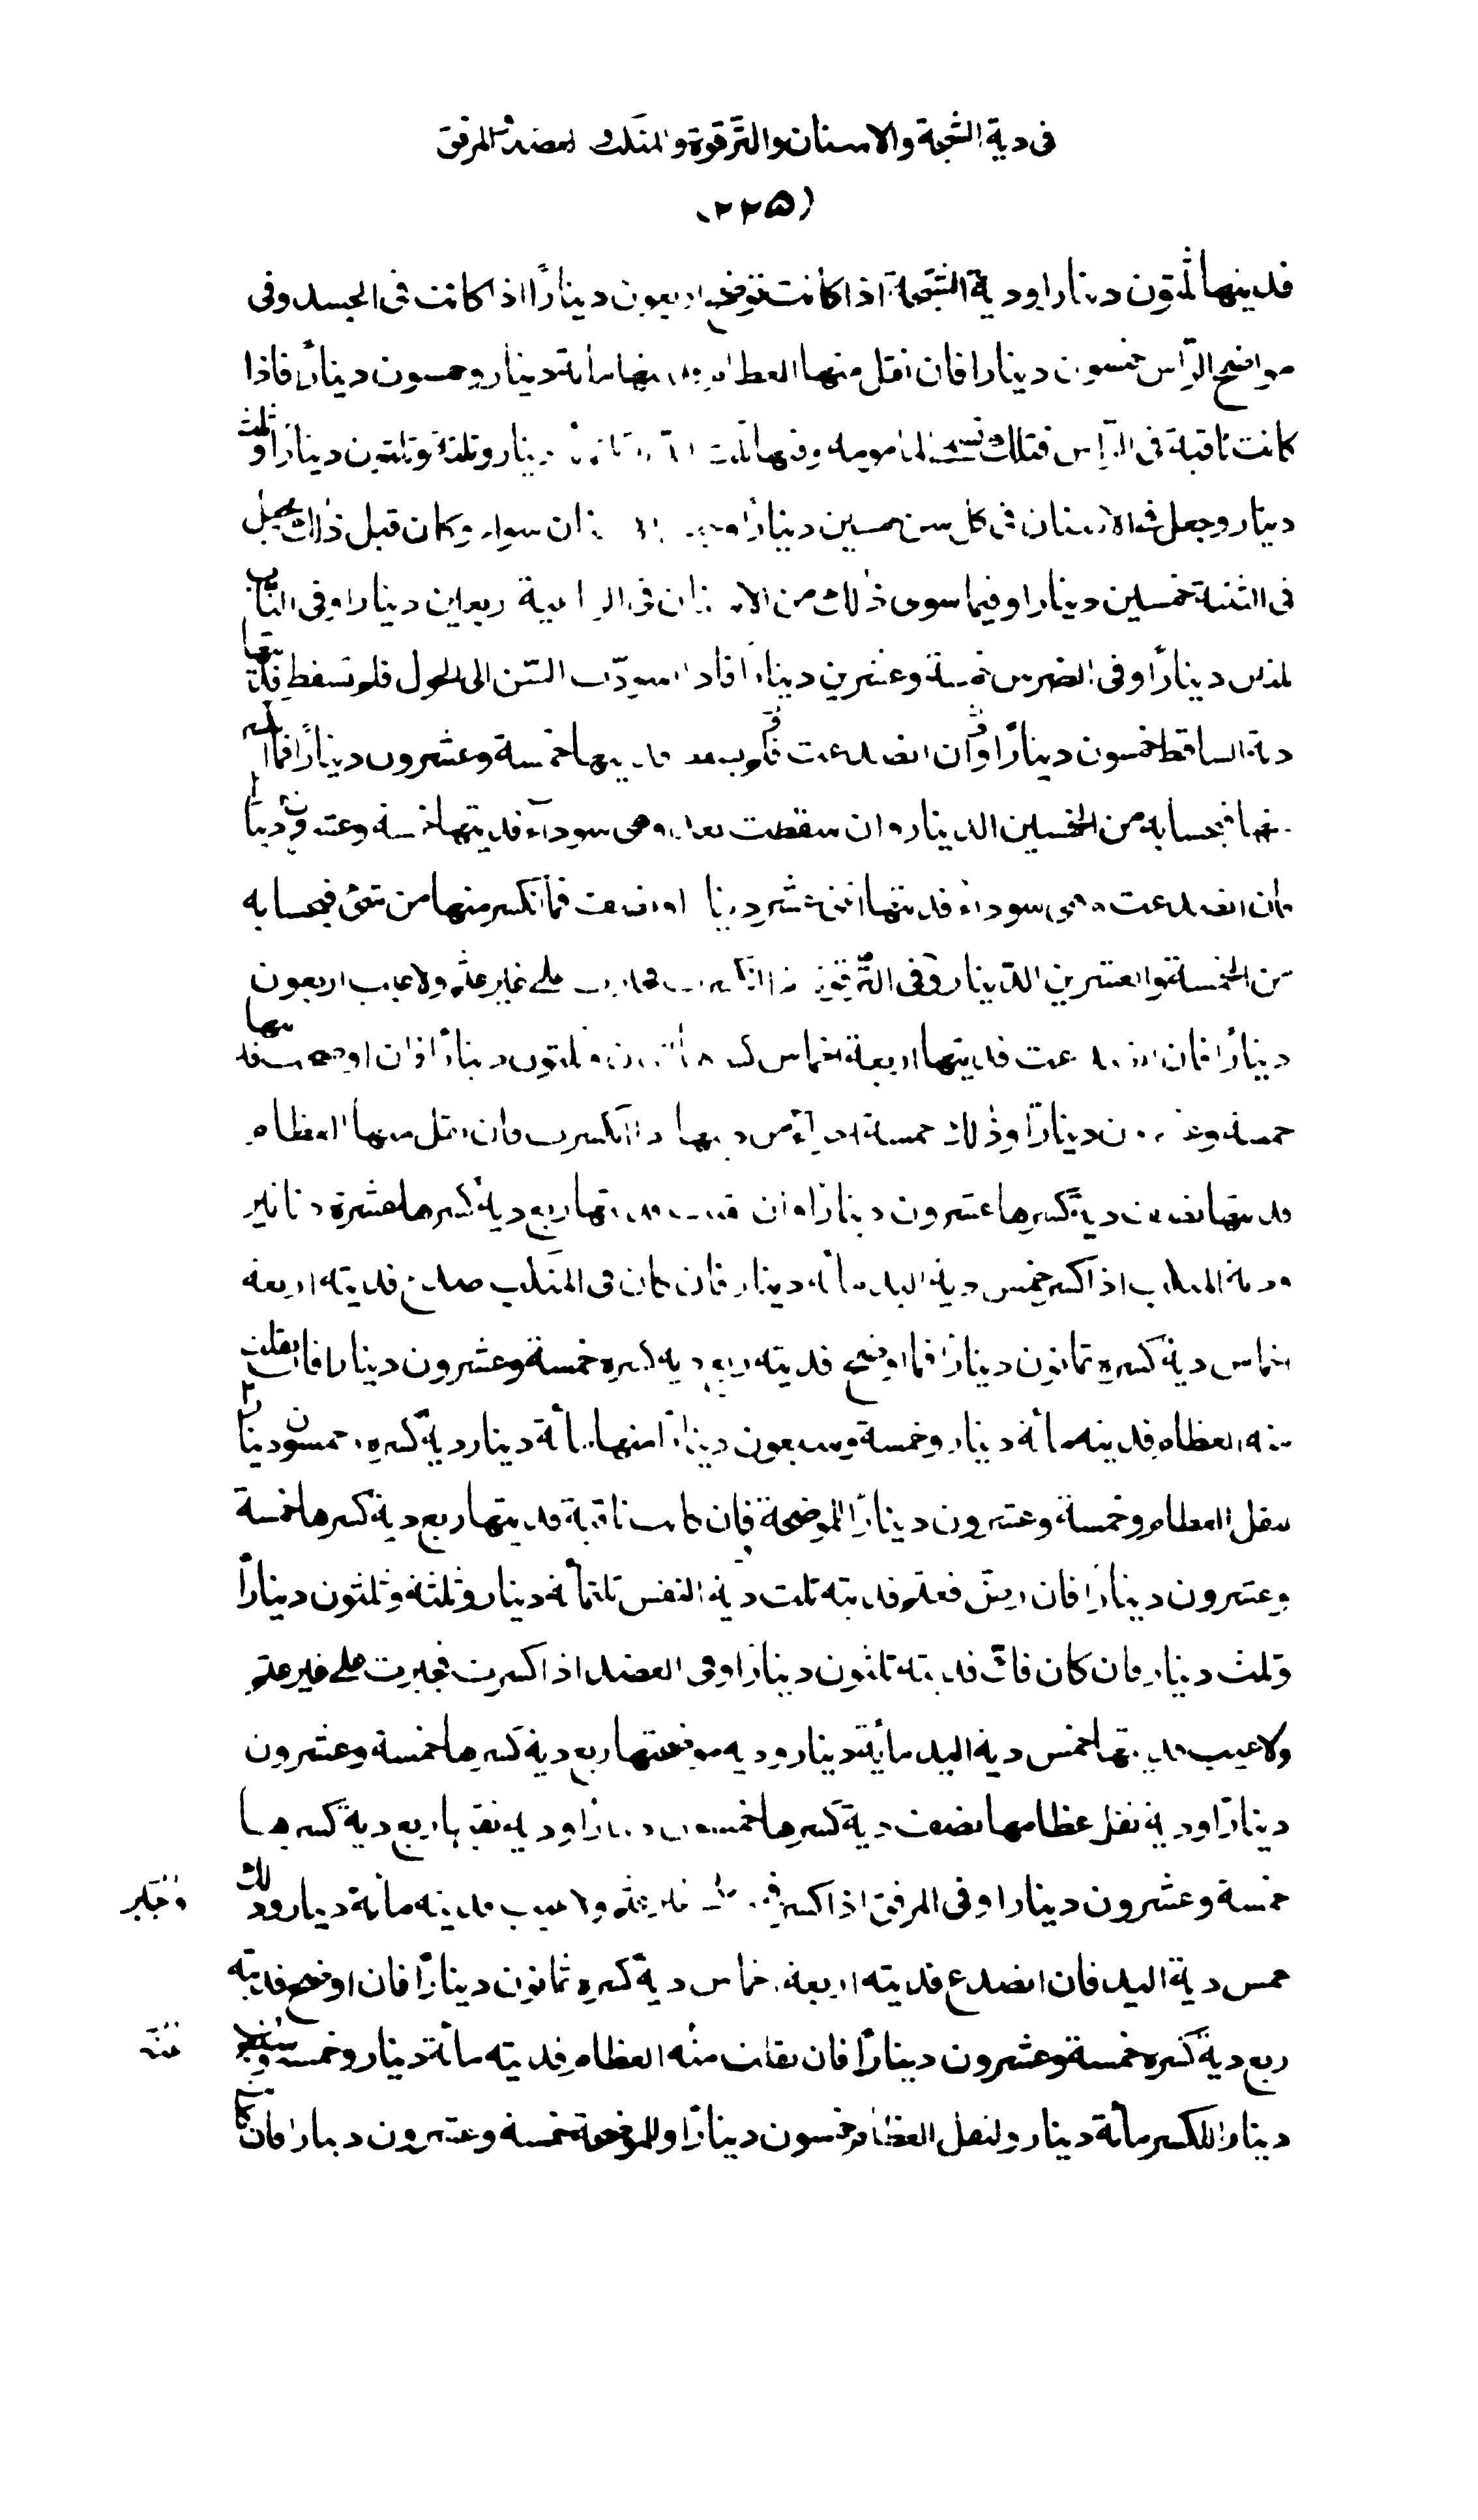 فى دية الشجة والاسنان والترقوة والمنكب والعضد والمرفق
(۲۲۵)
فديتها ثلثون دينارا ودية الشجة اذا كانت توضح اربعون دينارًا اذا كانت فى الجسد وفى
مواضح الرّاس خمسون دينارا فان نقل منها العظام فديتها مائة دينار وخمسون دينارًا فاذا
كانت ثاقبة فى الرّاس فتلك تسمى المامومه وفيها ثلث دينار وثلثة وثلثين دينارًا وثلث
دينار وجعل فى الاسنان فى كل سن خمسين دينارًا سواء وكان قبل ذلك يجعل
فى الثنية خمسين دينارا وفيما سوى ذلك من الاسنان فى الرباعية اربعين دينارا وفى الناب
ثلثين دينارًا وفى الضرس خمسة وعشرين دينارًا فاذا اسودّت السّن الى الحول فلم تسقط فديتها
دية الساقط خمسون دينارًا وان انصدعت فلم تسقط فديتها خمسة وعشرون دينارًا فما انكسر
منها فبحسابه من الخمسين الدينار وان سقطت بعد وهى سوداء فديتها خمسة وعشرون دينارًا
فان انصدعت وهى سوداء فديتها اثنى عشر دينارا ونصف فما انكسر منها من شئ فبحسابه
من الخمسة والعشرين الدّينار وفى التّرقوة اذا انكسرت فجبرت على غير عثم ولا عيب اربعون
دينارًا فان انصدعت فديتها اربعة اخماس كسرها اثنان وثلثون دينارًا فان اوضحت فديتها
خمسة وعشرون دينارًا وذلك خمسة اجزاء من ديتها اذا انكسرت فان نقل منها العظام
فديتها نصف دية كسرها عشرون دينارًا فان نقبت فديتها ربع دية كسرها عشرة دنانير
ودية المنكب اذا كسر خمس دية اليد مائة دينار فان كان فى المنكب صدع فديته اربعة
اخماس دية كسره ثمانون دينارًا فما اوضح فديته ربع دية كسره خمسة وعشرون دينارا فان نقلت
منه العظام فديته مائة دينار وخمسة وسبعون دينارًا منها مائة دينار دية كسره وخمسون دينارا
لنقل العظام وخمسة وعشرون دينارًا للموضحة فان كانت ناقبة فديتها ربع دية كسرها خمسة
وعشرون دينارًا فان رضّ فعثم فديته ثلث دية النفس ثلثمائة دينار وثلثة وثلثون دينارًا
وثلث دينار فان كان فكّ فديته ثلثون دينارًا وفى العضد اذا كسرت فجبرت على غير عثم
ولا عيب فديتها خمس دية اليد مائة دينار ودية موضحتها ربع دية كسرها خمسة وعشرون
دينارًا ودية نقل عظامها نصف دية كسرها خمسون دينارًا ودية نقبها ربع دية كسرها
خمسة وعشرون دينارا وفى المرفق اذا كسر على غير عثم ولا عيب فديته مائة دينار وذلك
وَجُبِر
خمس دية اليد فان انصدع فديته اربعة اخماس دية كسره ثمانون دينارًا فان اوضح فديته
ربع دية كسره خمسة وعشرون دينارًا فان نقلت منه العظام فديته مائة دينار وخمسة وسبعون
عنه
دينارا للكسر مائة دينار ولنقل العظام خمسون دينارًا وللموضحة خمسة وعشرون دينارا فان كانت